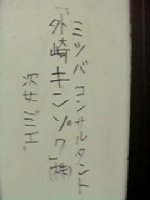 ミツバコンサルタント
「外崎キンゾク」(株)
次せジエ」